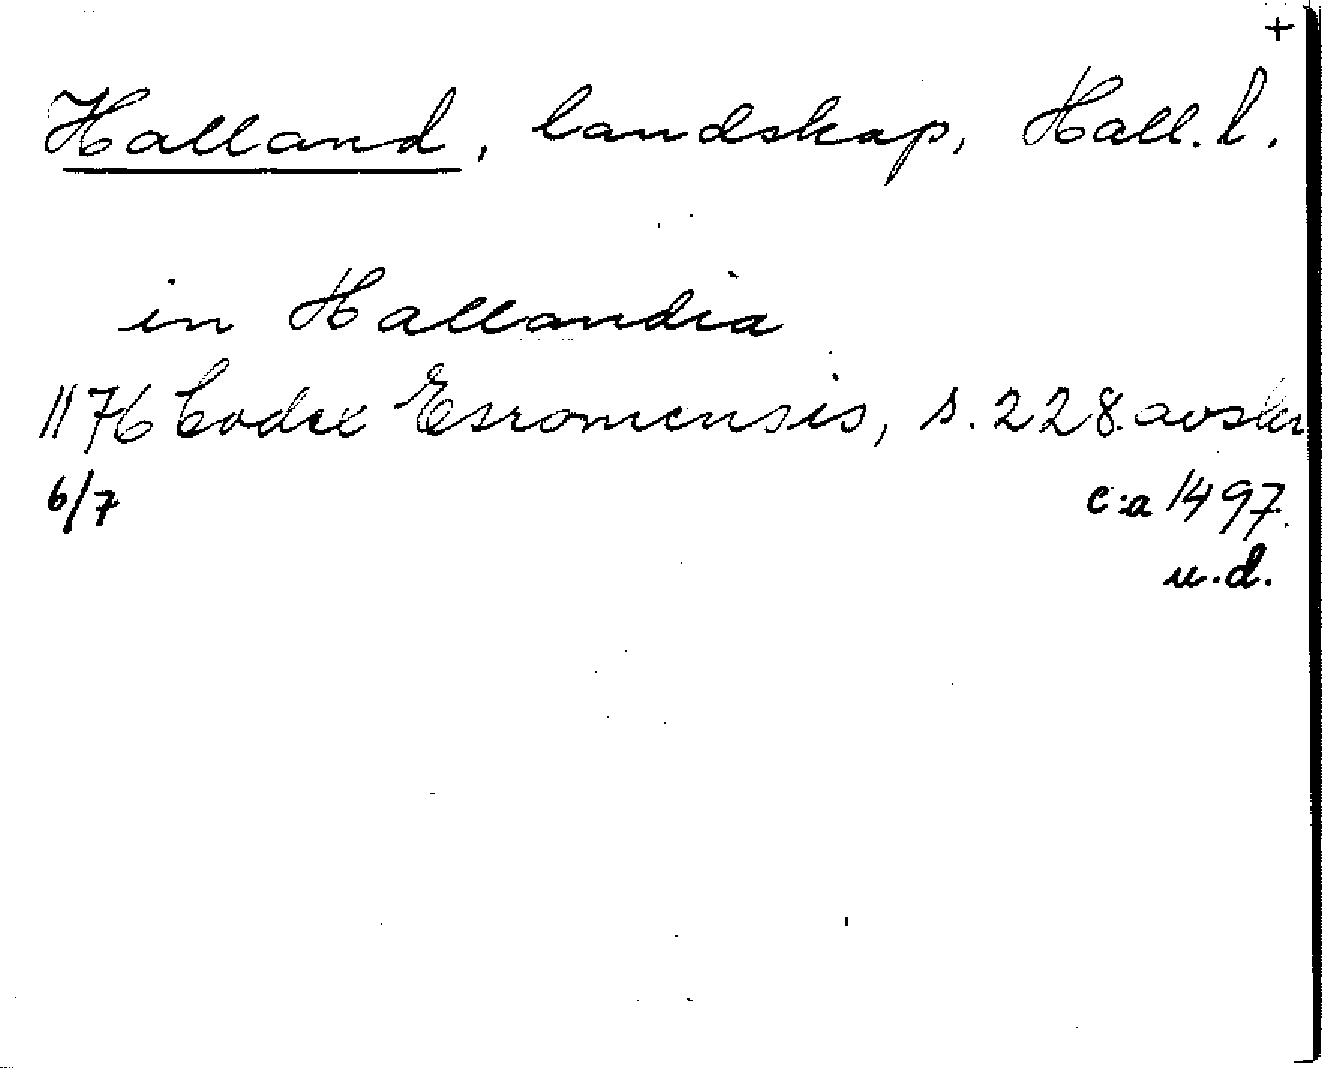 +
Halland, landskap, Hall. l.
in Hallandia
1176 Codex Esromensis, s. 228. avskr
6/7 c:a 1497.
u.d.